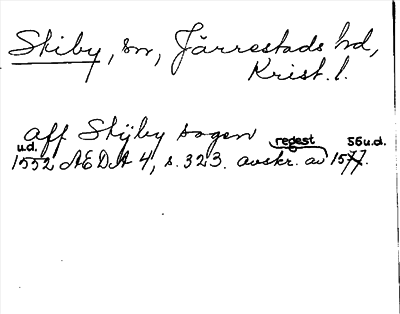 Skiby, sn, Järrestads hd,
Krist. l.
aff Skijby sogen
u.d. regest 56 u.d.
1552 ÆDA 4, s. 323. avskr. av 1577.